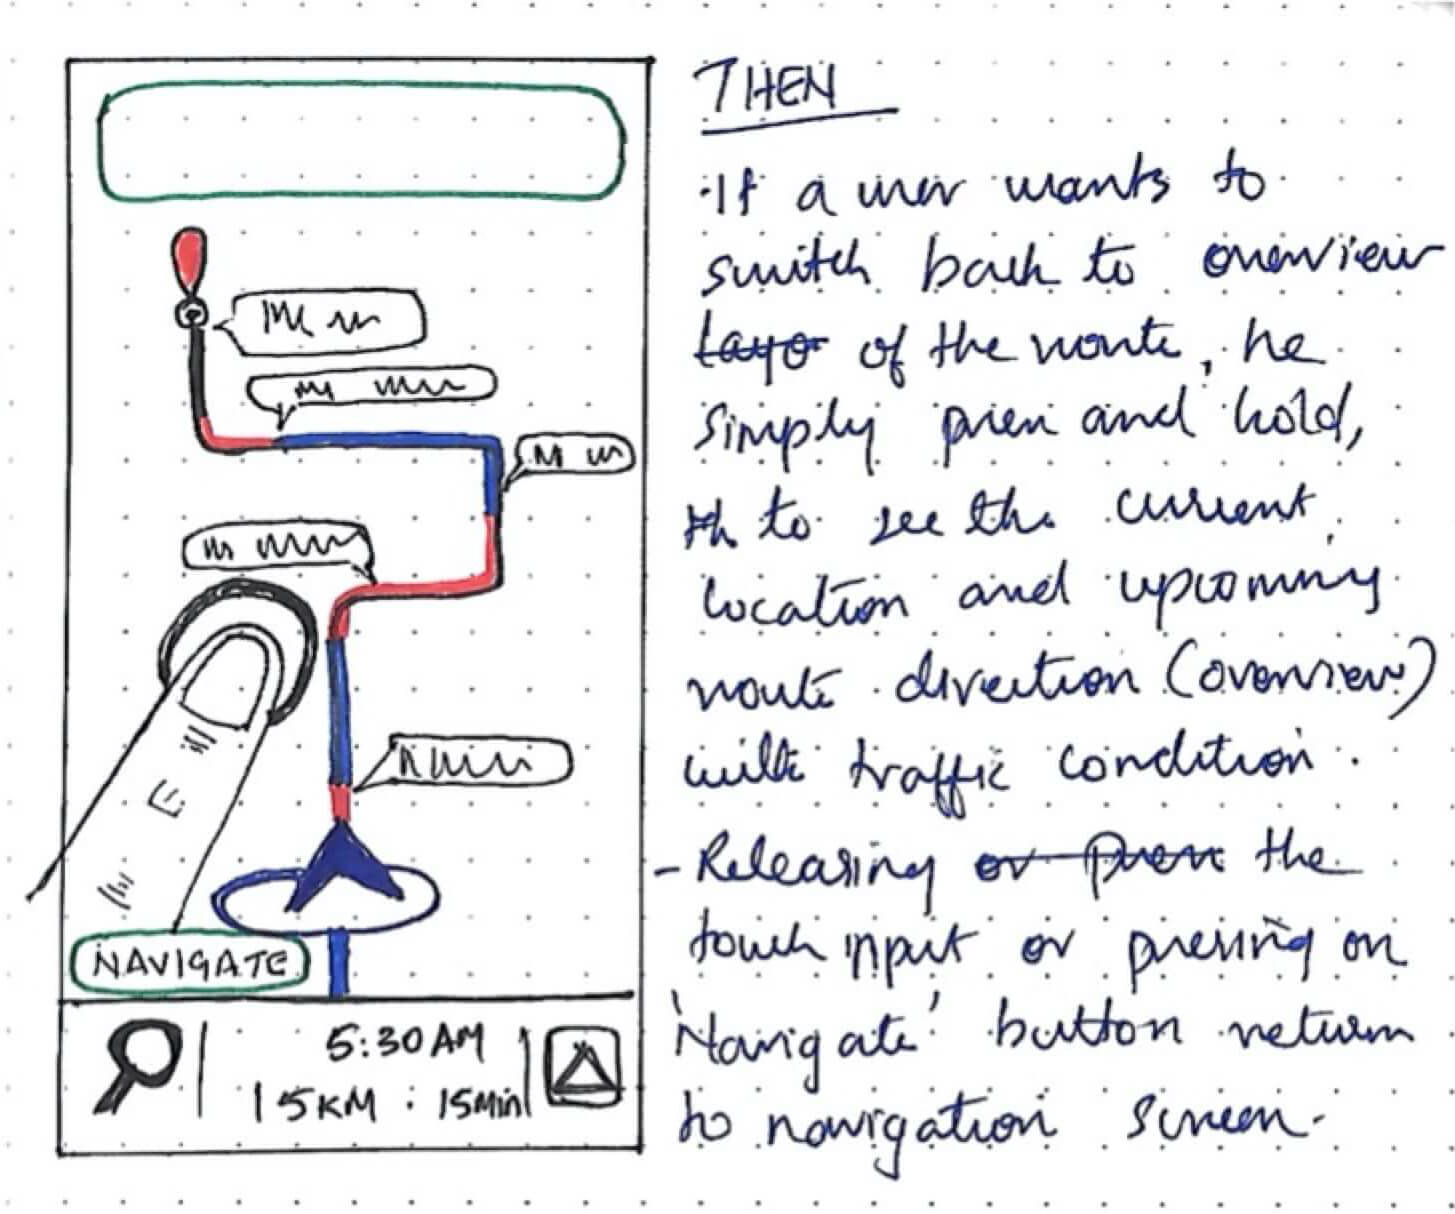 THEN
· If a user wants to
switch back to overview
layo of the route, he
simply press and hold,
th to see the current
location and upcoming
route direction (overview)
with traffic condition.
- Releasing or press the
touch input or pressing on
'Navigate' button return
to navigation screen.
NAVIGATE
5:30 AM
15KM : 15Min